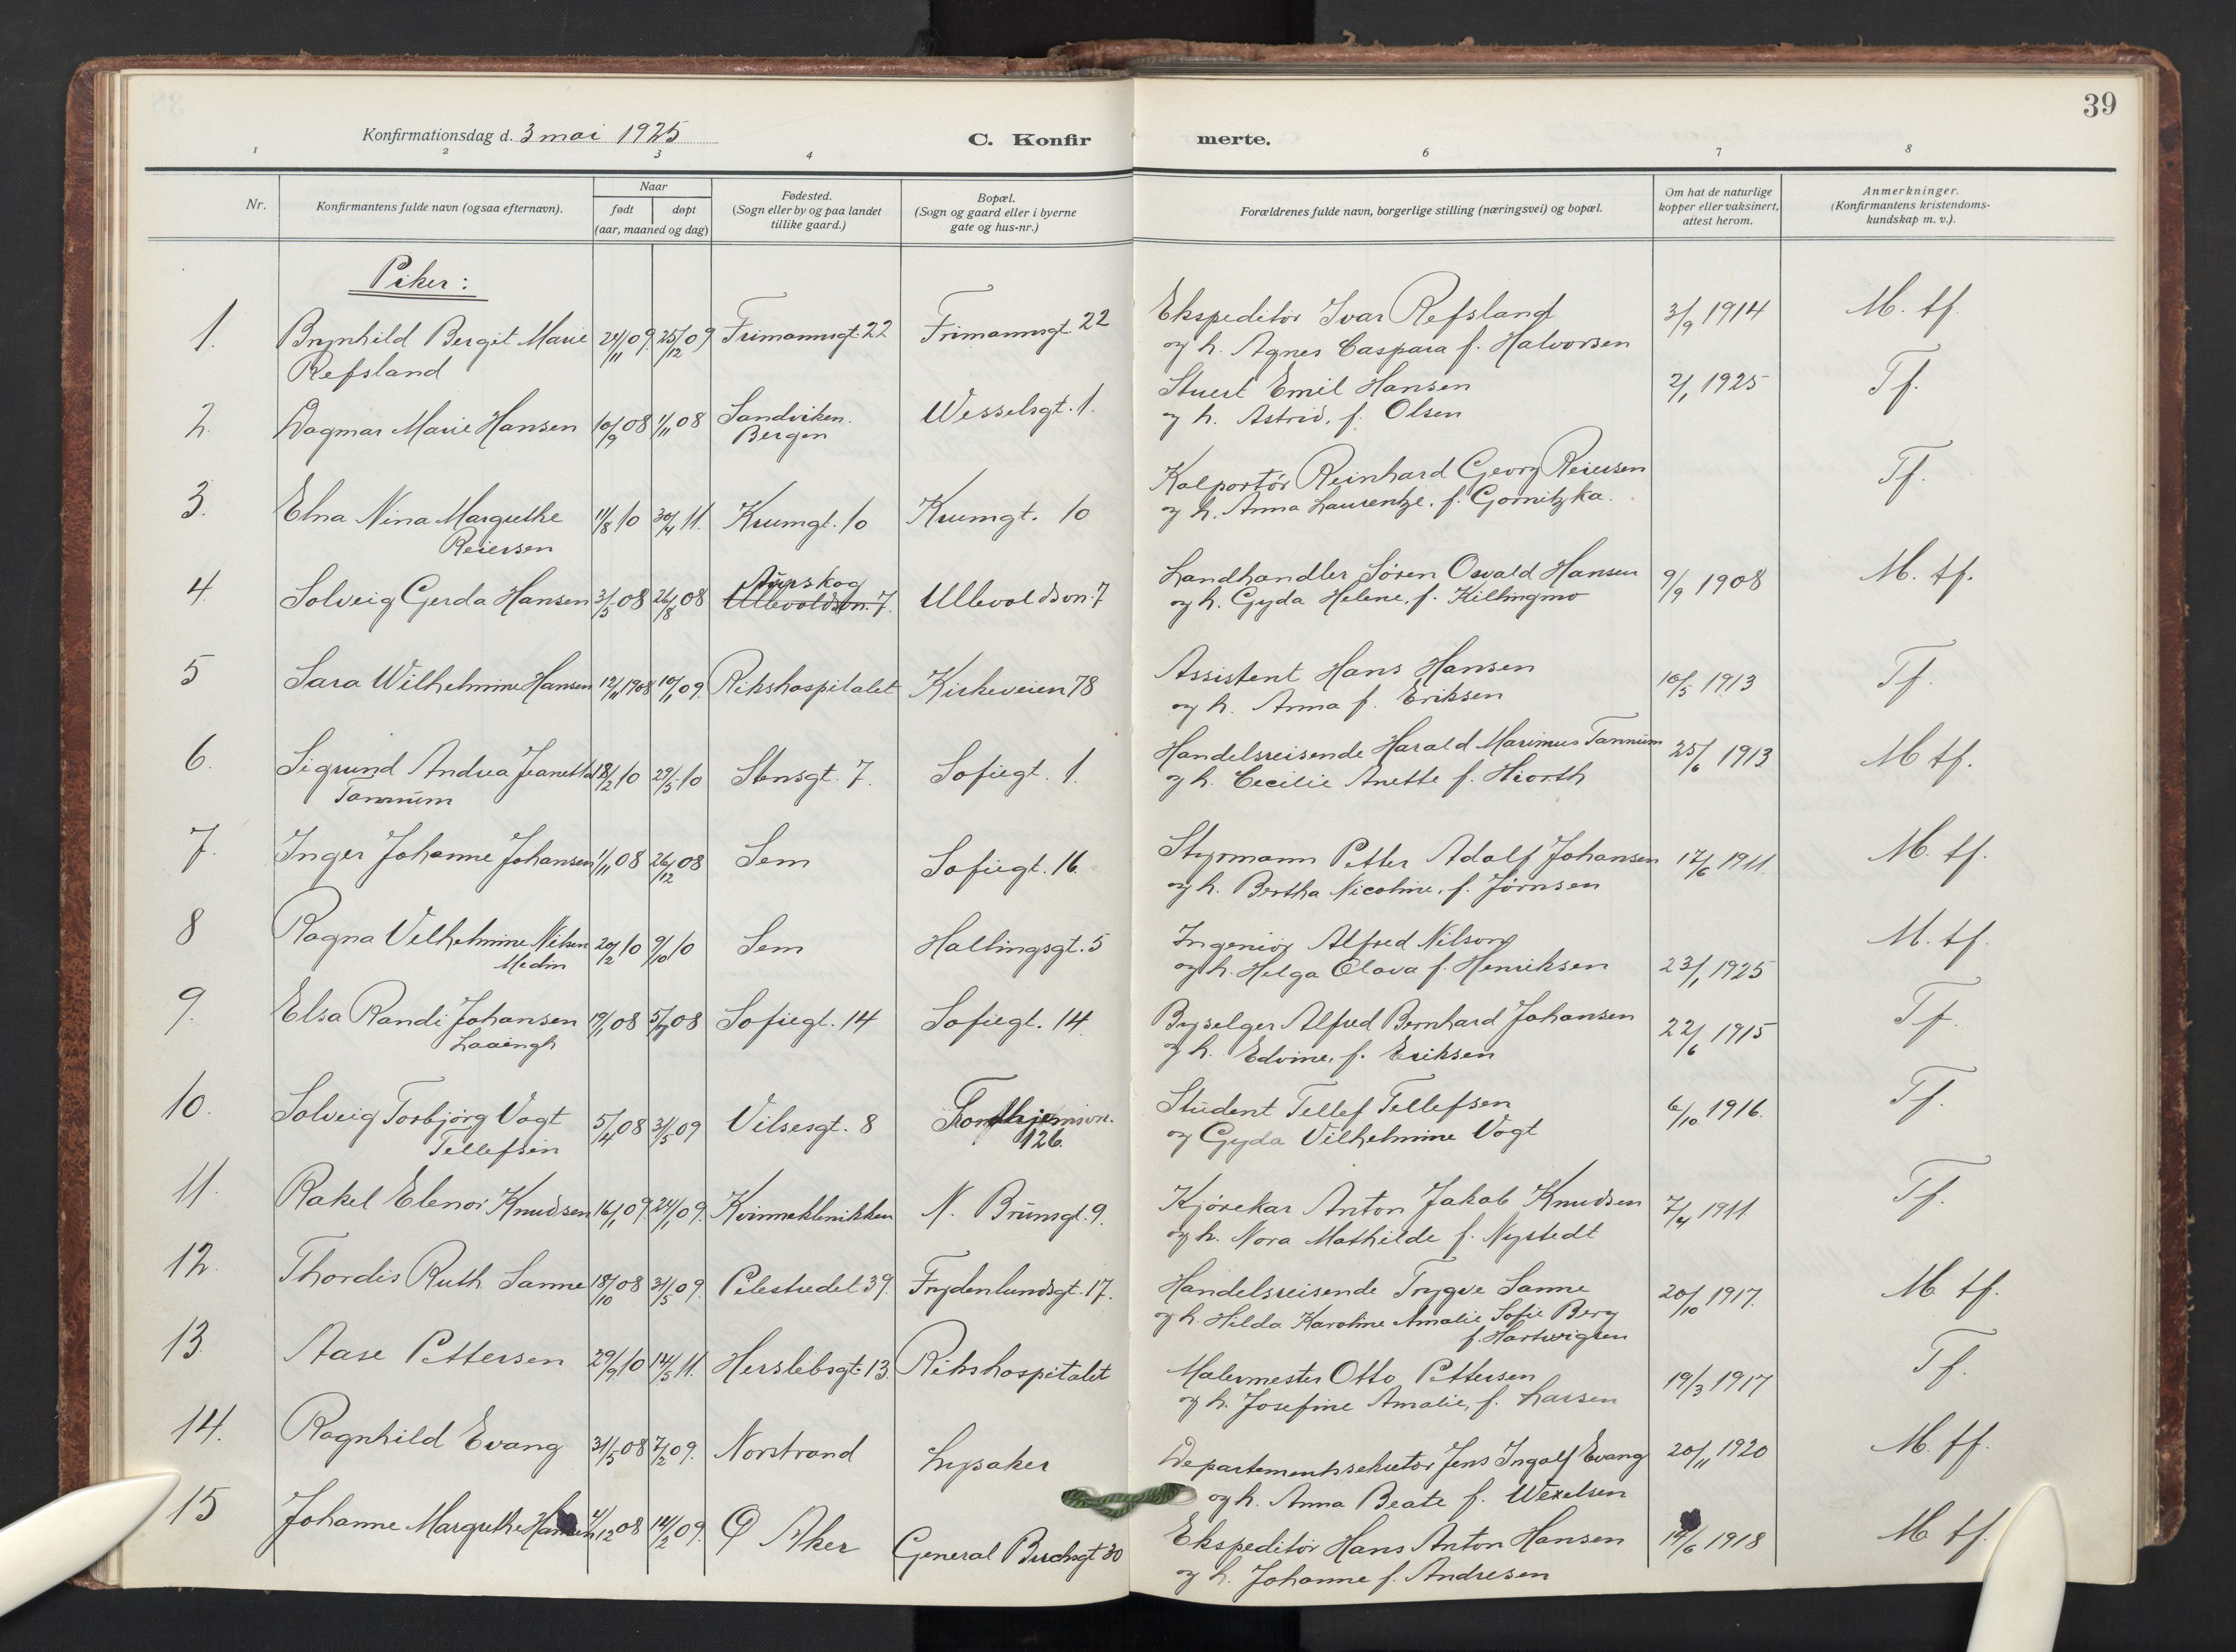 39
Konfirmationsdag d. 3 mai 1925
C. Konfirmerte.
1 2 3 4 6 7 8
Nr.
Konfirmantens fulde navn (ogsaa efternavn).
Naar
født døpt
(aar, maaned og dag)
Fødested.
(Sogn eller by og paa landet
tillike gaard.)
Bopæl.
(Sogn og gaard eller i byerne
gate og hus-nr.)
Forældrenes fulde navn, borgerlige stilling (næringsvei) og bopæl.
Om hat de naturlige
kopper eller vaksinert,
attest herom.
Anmerkninger.
(Konfirmantens kristendoms-
kundskap m. v.).
Piker:
1. Brynhild Bergit Marie 24/11 09. 25/12 09 Frimannsgt. 22 Frimannsgt. 22 Ekspeditør Ivar Refsland 3/9 1914 M. tf.
Refsland og h. Agnes Caspara f. Halvorsen
2. Dagmar Marie Hansen 10/9 08 1/11 08 Sandviken. Wesselsgt. 1. Stuert Emil Hansen 2/1 1925 Tf.
Bergen og h. Astrid, f. Olsen
3. Elna Nina Margrethe 11/8 10 30/4 11. Krumgt. 10 Krumgt. 10 Kolportør Reinhard Georg Reiersen Tf.
Reiersen og h. Anna Laurentze, f. Gornitzka.
4. Solveig Gerda Hansen 3/5 08 26/8 08 Aurskog Ullevoldsvn. 7. Ullevoldsvn. 7 Landhandler Sören Osvald Hansen 9/9 1908 M. tf.
og h. Gyda Helene, f. Killingmo
5 Sara Wilhelmine Hansen 12/11 1908 10/1 09. Rikshospitalet Kirkeveien 78 Assistent Hans Hansen 10/5 1913 Tf.
og h. Anna f. Eriksen
6. Sigrund Andrea Jeanette 18/2 10 29/5 10 Stensgt. 7. Sofiegt. 1. Handelsreisende Harald Marinius Tannum 25/6 1913 M tf.
Tannum og h. Cecilie Anette f. Hiorth
7. Inger Johanne Johansen 1/11 08 26/12 08 Sem Sofiegt. 16. Styrmann Petter Adolf Johansen 17/6 1911. M. tf.
og h. Bertha Nicoline, f. Jørnsen
8 Ragna Vilhelmine Nilsen 20/2 10 9/10 10 Sem Hallingsgt. 5 Ingeniør Alfred Nilsen M. tf.
Medin og h. Helga Olava f. Henriksen 23/1 1925
9. Elsa Randi Johansen 19/1 08 5/7 08 Sofiegt. 14 Sofiegt. 14. Byselger Alfred Bernhard Johansen 22/6 1915 Tf.
og h. Edvine, f. Eriksen
10. Solveig Torbjørg Vogt 5/4 08 31/5 09 Vilsesgt. 8 Trondhjemsvn. Student Tellef Tellefsen 6/10 1916. Tf.
Tellefsen 126. og Gyda Vilhelmine Vogt
11. Rakel Elenor Knudsen 16/1 09. 24/1 09. Kvinneklinikken N. Brunsgt. 9. Kjørekar Anton Jakob Knudsen 7/4 1911 Tf.
og h. Nora Mathilde f. Nystedt
12. Thordis Ruth Sanne 18/10 08 31/5 09. Pilestredet 39. Frydenlundsgt. 17. Handelsreisende Trygve Sanne 20/10 1917. M tf.
og h. Hilda Karoline Amalie Sofie Berg
f. Hartwigsen
13. Aase Pettersen 29/9 10 14/5 11. Herslebsgt. 13. Rikshospitalet Malermester Otto Pettersen 19/3 1917 Tf.
og h. Josefine Amalie, f. Larsen
14. Ragnhild Evang 31/5 08 7/2 09. Norstrand Lysaker Departementssekretær Jens Ingolf Evang 20/11 1920 M. tf.
og h. Anna Beate f. Wexelsen
15 Johanne Margrethe Hansen 4/12 08 14/2 09. Ø Aker General Birchsgt 30 Ekspeditør Hans Anton Hansen 14/6 1918 M tf.
og h. Johanne f. Andresen